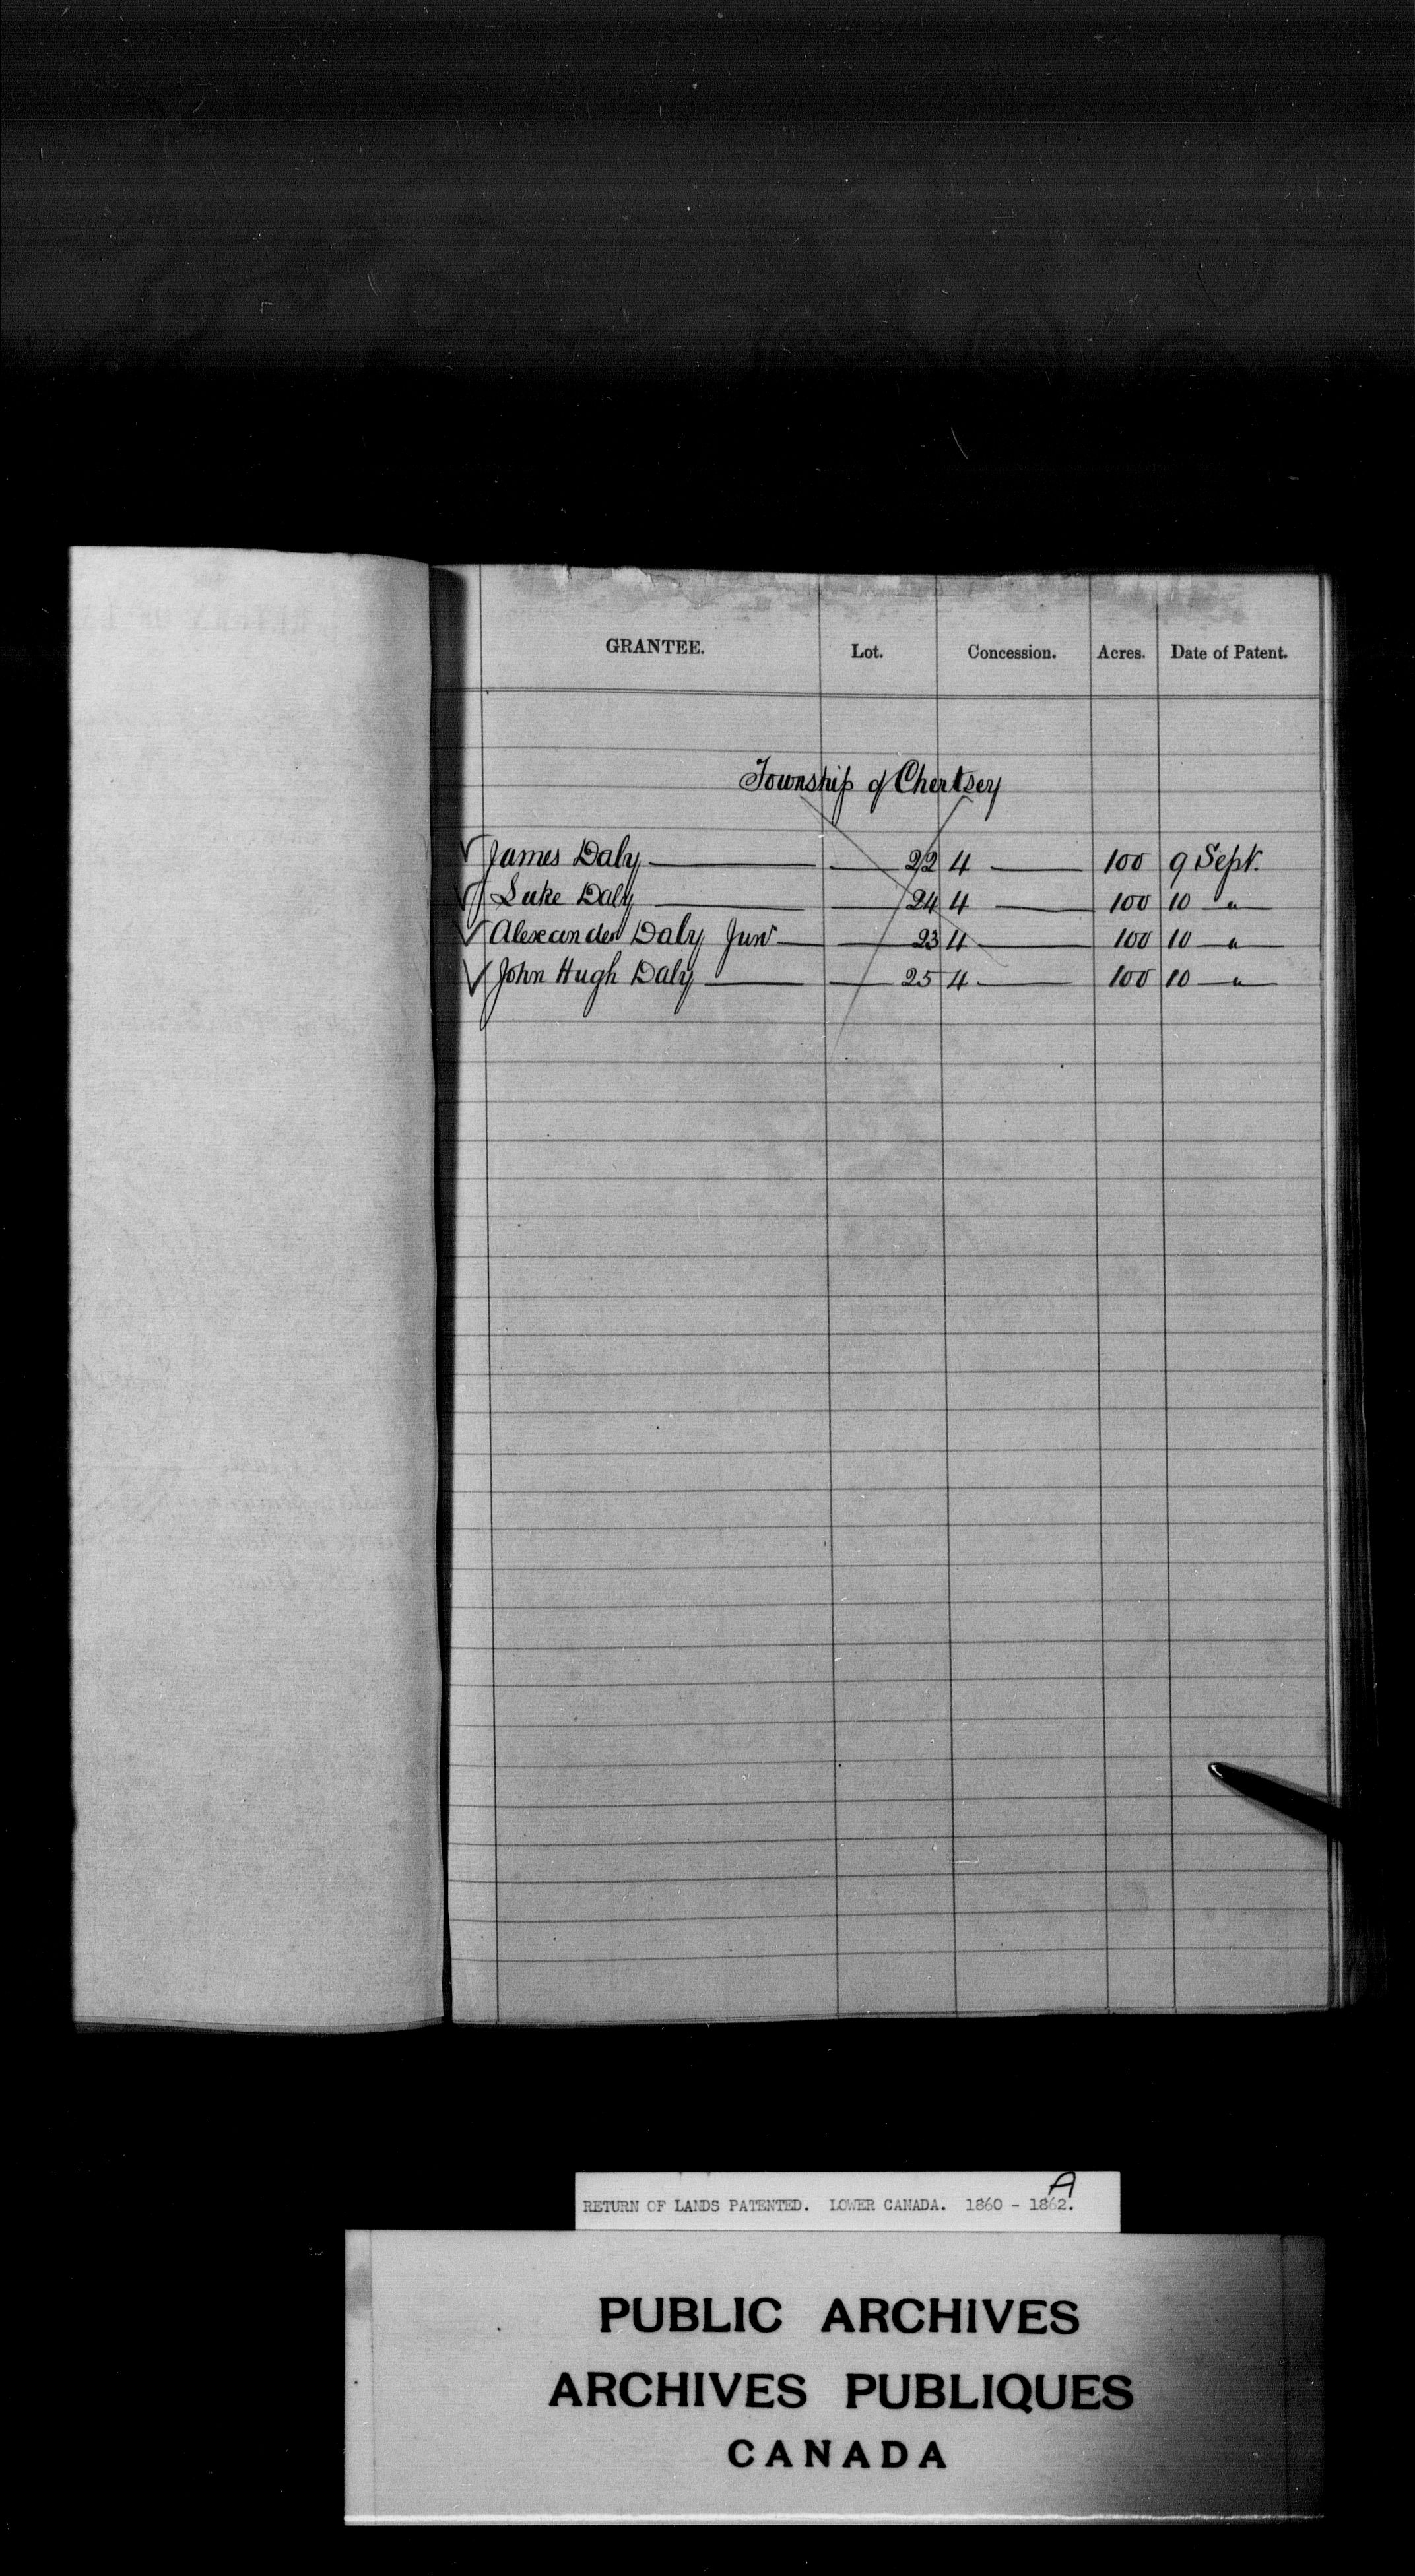 GRANTEE. Lot. Concession. Acres. Date of Patent.
Township of Chertsey
James Daly 22 4 100 9 Sept.
Luke Daly 24 4 100 10 "
Alexander Daly Junr 23 4 100 10 "
John Hugh Daly 25 4 100 10 "
A
RETURN OF LANDS PATENTED. LOWER CANADA. 1860 - 1862.
PUBLIC ARCHIVES
ARCHIVES PUBLIQUES
CANADA